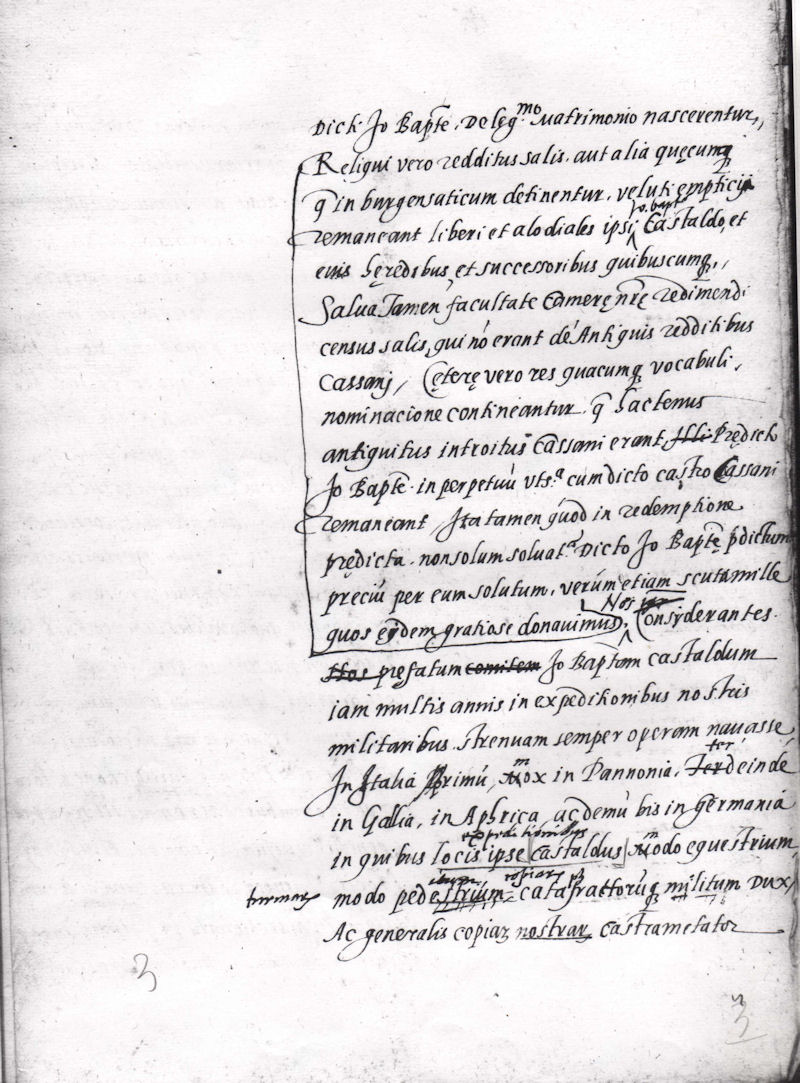 Dicti Jo Bapte. De legmo Matrimonio nascerentur,,
Religui vero redditus salis. aut alia quęcumq
q in burgensaticum detinentur. veluti emptiçij
Jo. bapt
remaneant liberi et alodiales ipsi Castaldo, et
euis hęredibus et successoribus quibuscumq,,
Salua Tamen facultate Camerę nrę redimendi
census salis, qui nó erant de Antiquis redditibus
Cassanj, Cęterę vero res quacumq vocabuli,
nominacione contineantur. q hactenus
antiquitus introitus Cassani erant, Illi Prędicti
Jo Bapte. in perpetuú vts.a cum dicto castro Cassani
remaneant, Ita tamen quod in redemptione
prędicta. non solum soluat.r Dicto Jo Baptę pdictum
preciú per eum solutum. verúm etiam scuta mille
Nos
quos eidem gratiose donauimus, Considerantes.
Hos pręfatum comitem Jo Baptam castaldum
iam multis annis in expeditionibus nostris
militaribus strenuam semper operam nauasse
ter
In Italia Primú, Mox in Pannonia, Ter deinde
in Gallia, in Aphrica, ac demú bis in germania
expeditionibus
in quibus locis ipse castaldus modo equestrium
copiar
turmar modo pedestrium catafractorúq militum Dux
Ac generalis copiar nostrar castrametator
3
3